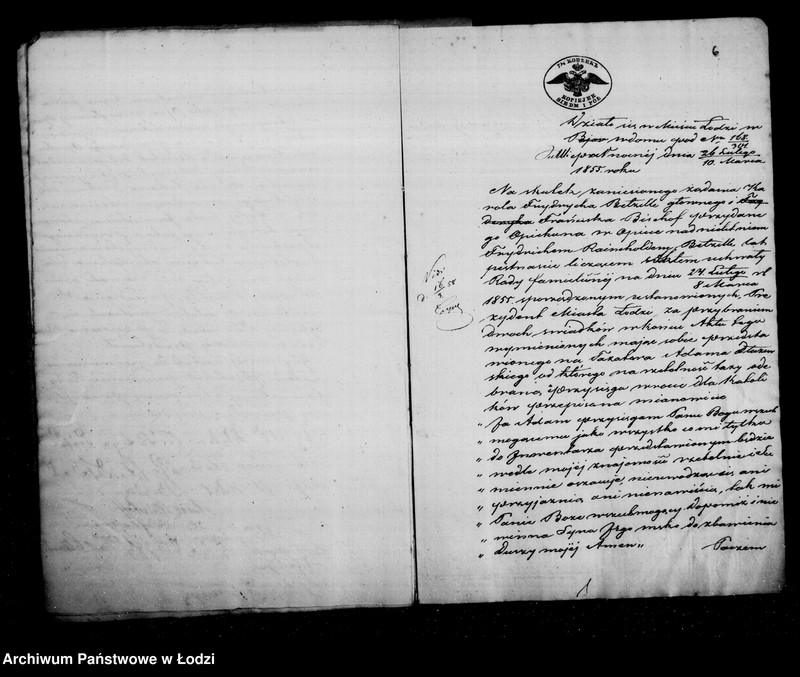 6
7½ KOPIEEK
KOPIEJEK
SIEDM I PÓŁ
Działo się w Mieście Łodzi w
domu pod Nr 168/301
przed nocnéj dnia 26 Lutego
10. Marca
1855 roku
Na skutek zaniesionego żądania Ka
rola Frydrycha Betzelle głównego i Fry
deryka Franciszka Bischof przydane
go Opiekuna w Opiece nad nieletniem
Frydrichem Rainholdem Betzelle lat
piętnaście liczącem uchwały
Rady familijnéj na dniu 24 Lutego r b
8 Marca
1855 sporządzonym ustanowionych, Pre
zydent Miasta Łodzi, za przybraniem
dwóch świadków w końcu Aktu tego
wymienionych mając sobie przedsta
wionego na Taxatora Adama
skiego od którego na rzetelność taxy ode
brano, przysięga w rocie dla Katoli
ków przepisana mianowicie
Ja Adam przysięgam Panu Bogu wszech
„ mogącemu jako wszystko co mi tylko
„ do Inwentarza przedstawionym będzie
„ wedle mojéj znajomość rzetelnie i su
„ miennie oszacuję, nieuwodząc się ani
„ przyjaźnią, ani nienawiścią, tak mi
„ Panie Boże wszechmogący dopomóż i nie
„ winna Syna Jego męko do zbawienia
„ Duszy mojéj Amen „ Poczem
Archiwum Państwowe w Łodzi